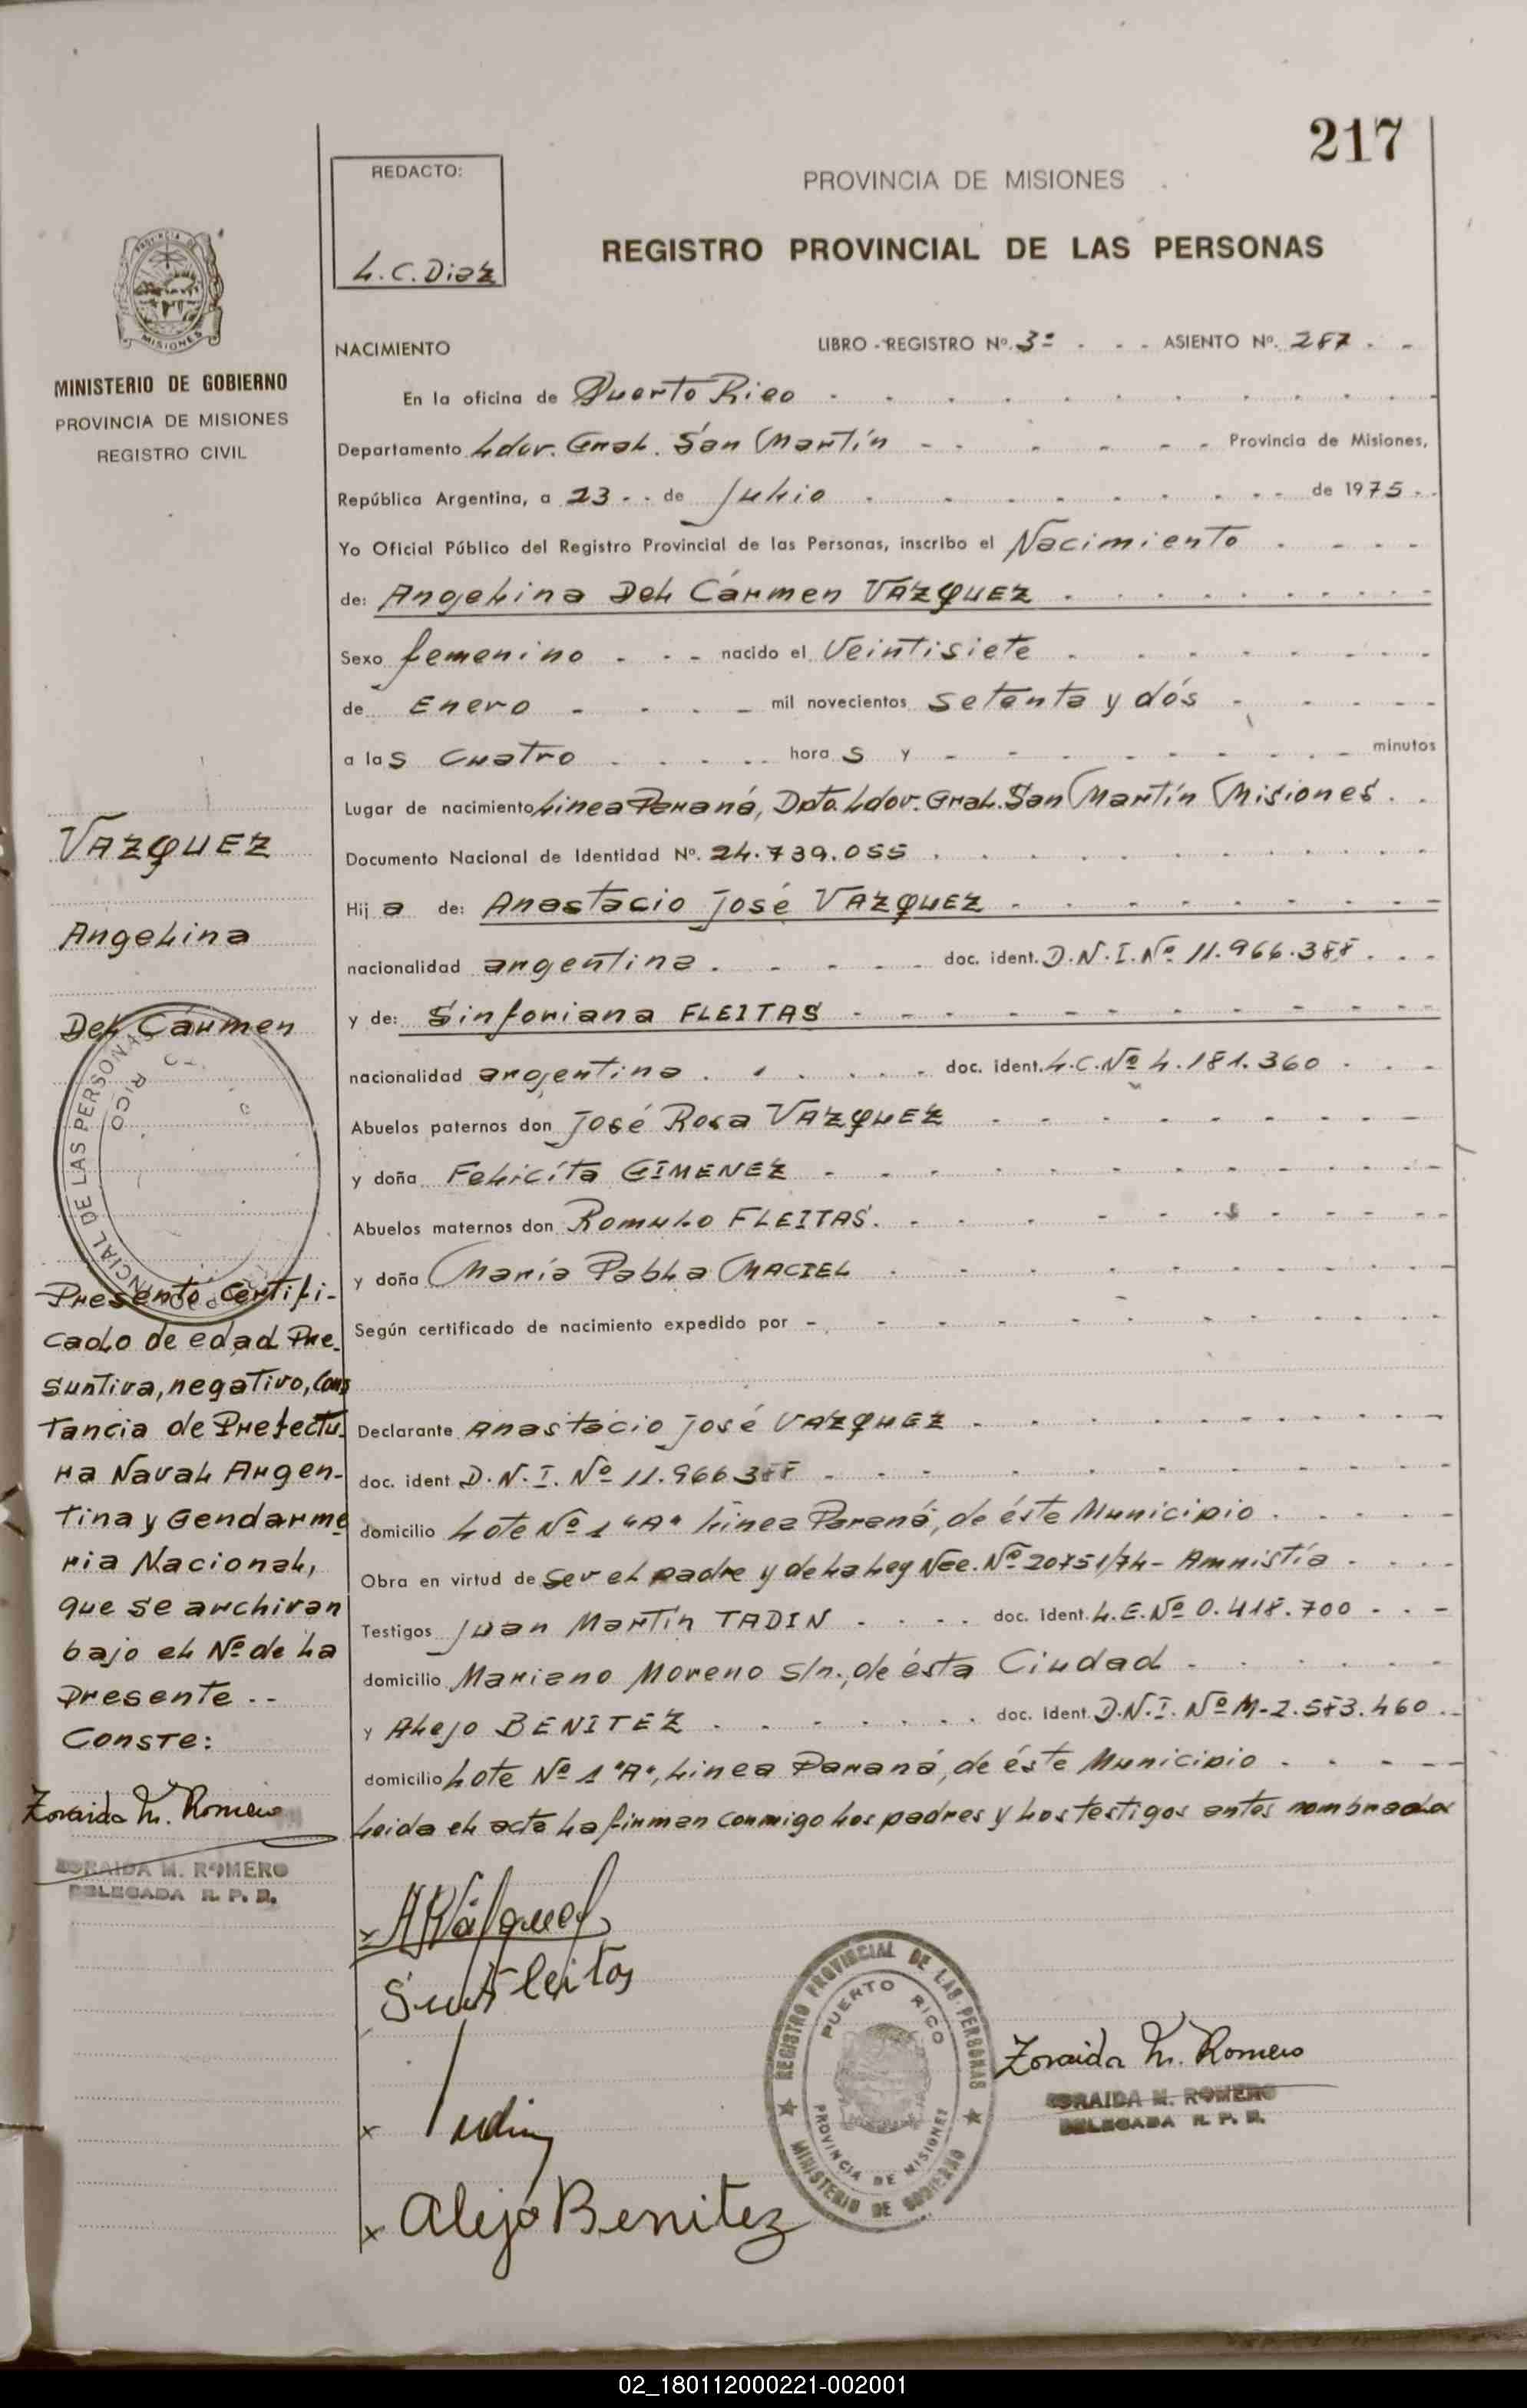 217
REDACTO:
L.C. Diaz
PROVINCIA DE MISIONES
REGISTRO PROVINCIAL DE LAS PERSONAS
MISIONES
MINISTERIO DE GOBIERNO
PROVINCIA DE MISIONES
REGISTRO CIVIL
NACIMIENTO LIBRO - REGISTRO Nº. 3º - - - ASIENTO Nº. 287 - -
En la oficina de Puerto Rico
Departamento Ldor. Gral. San Martín - - Provincia de Misiones,
República Argentina, a 23 - - de Julio de 1975 - -
Yo Oficial Público del Registro Provincial de las Personas, inscribo el Nacimiento
de: Angelina Del Cármen VAZQUEZ
Sexo femenino - - - nacido el Veintisiete
de Enero - - - - mil novecientos setenta y dós
a las cuatro - - - - hora s y - - - - minutos
Lugar de nacimiento Linea Paraná, Dpto. Ldor. Gral. San Martín Misiones. .
Documento Nacional de Identidad Nº. 24.739.055
Hij a de: Anastacio José VAZQUEZ
nacionalidad argentina. - - - doc. ident. D.N.I. Nº 11.966.388 . - -
y de: Sinforiana FLEITAS
nacionalidad argentina . . . . doc. ident. L.C. Nº 4.181.360
Abuelos paternos don José Rosa VAZQUEZ
y doña Felicíta GIMENEZ
Abuelos maternos don Romulo FLEITAS.
y doña María Pabla MACIEL
Según certificado de nacimiento expedido por -
Declarante Anastacio José VAZQUEZ
doc. ident D.N.I. Nº 11.966.388
domicilio Lote Nº 1 "A" Línea Paraná, de éste Municipio
Obra en virtud de Ser el padre y de la Ley Nac. Nº 20751/74 - Amnistía
Testigos Juan Martín TADIN - - - - doc. ident. L.E. Nº 0.418.700 - - -
domicilio Mariano Moreno s/n., de ésta Ciudad
y Alejo BENITEZ doc. ident. D.N.I. Nº M-2.583.460 . -
domicilio Lote Nº 1 "A", Linea Paraná, de éste Municipio
Leida el acta la firman conmigo los padres y los testigos antes nombrados
VAZQUEZ
Angelina
Del Cármen
DE LAS PERSONAS
RICO
Presentó Certifi-
cado de edad Pre-
suntiva, negativo, Cons
tancia de Prefectu-
ra Naval Argen-
tina y Gendarme
ria Nacional,
que se archivan
bajo el Nº de la
Presente --
Conste:
Zoraida M. Romero
ZORAIDA M. ROMERO
DELEGADA R. P. P.
Fleitas
Tadin
Alejo Benitez
REGISTRO PROVINCIAL DE LAS PERSONAS
PUERTO RICO
PROVINCIA DE MISIONES
MINISTERIO DE GOBIERNO
Zoraida M. Romero
ZORAIDA M. ROMERO
DELEGADA R. P. P.
02_180112000221-002001